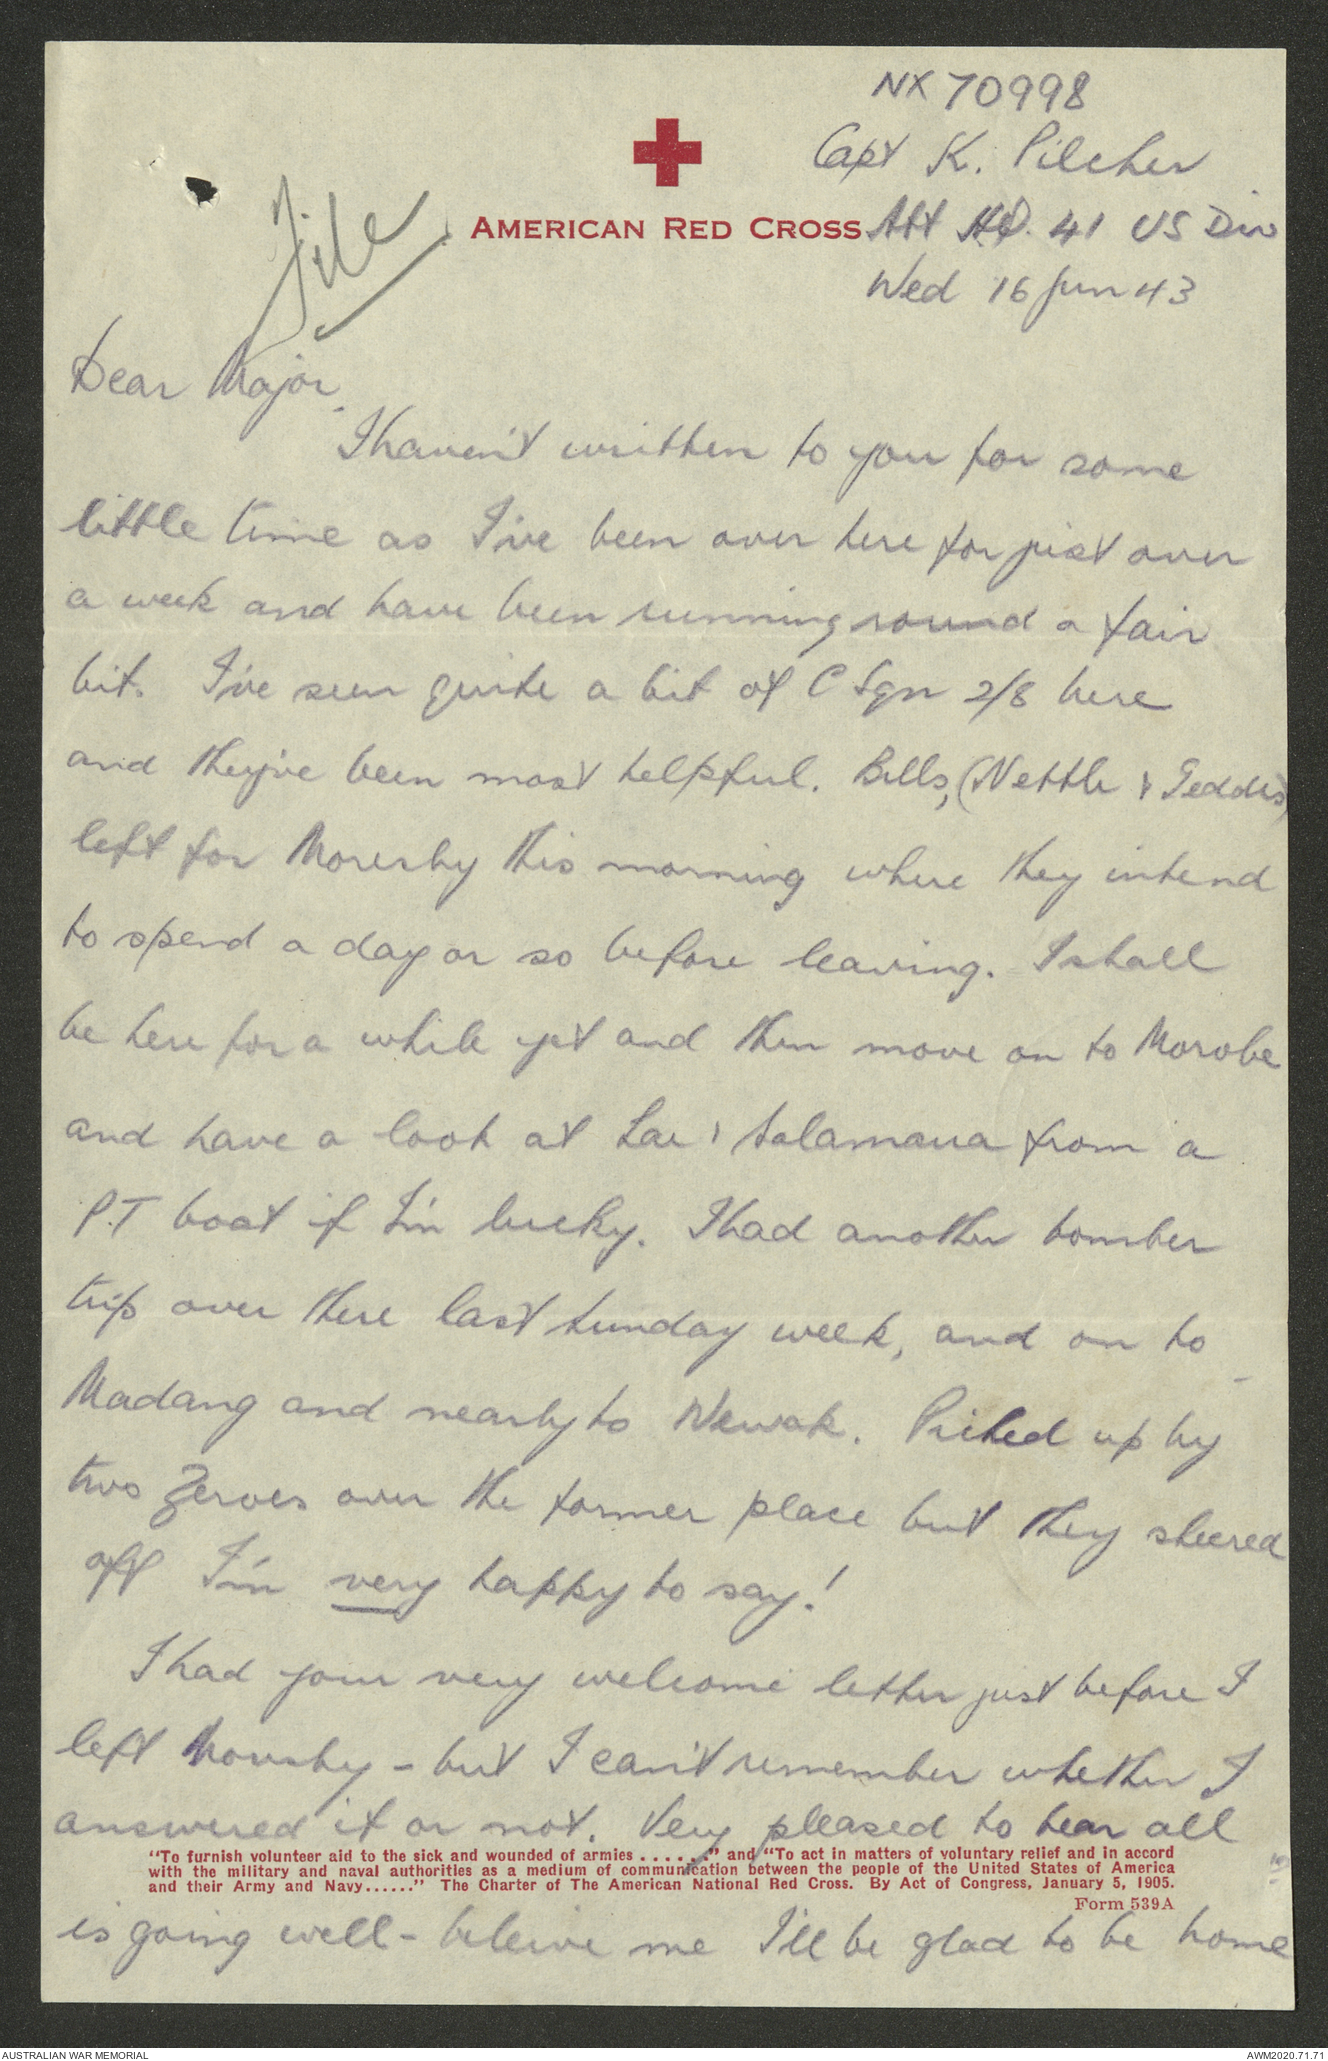 NX 70998
Capt K. Pilcher
AMERICAN RED CROSS Att HQ. 41 US Div
Wed 16 Jun 43
File
Dear Major,
I haven't written to you for some
little time as I've been over here for just over
a week and have been running round a fair
bit. I've seen quite a bit of C Sqn 2/8 here
and they've been most helpful. Bills, (Nettle & Geddes)
left for Moresby this morning where they intend
to spend a day or so before leaving. I shall
be here for a while yet and then move on to Morobe
and have a look at Lae & Salamaua from a
P.T boat if I'm lucky. I had another bomber
trip over there last Sunday week, and on to
Madang and nearly to Wewak. Picked up by
two Zeroes over the former place but they sheered
off I'm very happy to say!
I had your very welcome letter just before I
left Moresby - but I can't remember whether I
answered it or not. Very pleased to hear all
"To furnish volunteer aid to the sick and wounded of armies ......" and "To act in matters of voluntary relief and in accord
with the military and naval authorities as a medium of communication between the people of the United States of America
and their Army and Navy......" The Charter of The American National Red Cross. By Act of Congress, January 5, 1905.
Form 539A
is going well - beleive me I'll be glad to be home
AUSTRALIAN WAR MEMORIAL
AWM2020.71.71